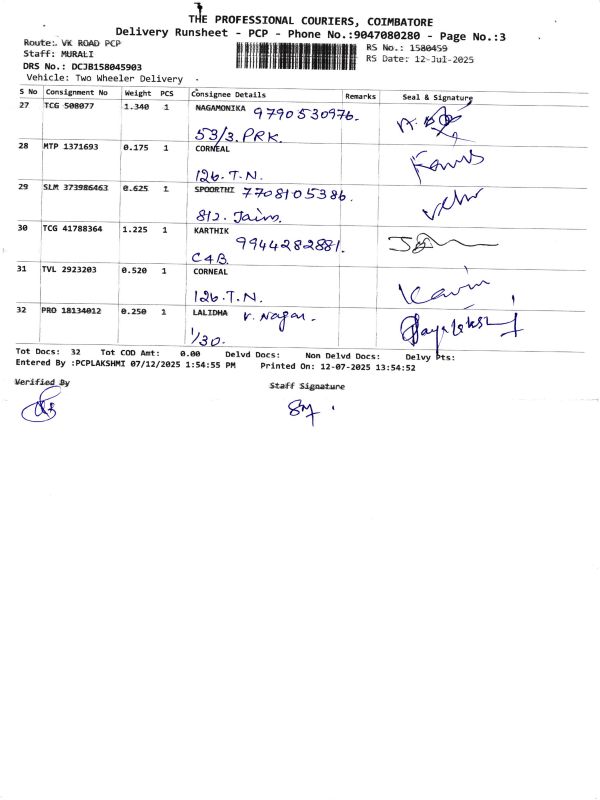 THE PROFESSIONAL COURIERS, COIMBATORE
Delivery Runsheet - PCP - Phone No.:9047080280 - Page No.:3
Route: VK ROAD PCP
Staff: MURALI
DRS No.: DCJB158045903
Vehicle: Two Wheeler Delivery
RS No.: 1580459
RS Date: 12-Jul-2025
S No Consignment No Weight PCS Consignee Details Remarks Seal & Signature
27 TCG 508077 1.340 1 NAGAMONIKA 9790530976.
53/3. PRK.
28 MTP 1371693 0.175 1 CORNEAL
126. T.N.
29 SLM 373986463 0.625 1 SPOORTHI 7708105386.
812. Jains.
30 TCG 41788364 1.225 1 KARTHIK 9944282881.
C4B.
31 TVL 2923203 0.520 1 CORNEAL
126. T.N. Kavin
32 PRO 18134012 0.250 1 LALIDHA V. Nagar.
1/30.
Tot Docs: 32 Tot COD Amt: 0.00 Delvd Docs: Non Delvd Docs: Delvy Pts:
Entered By :PCPLAKSHMI 07/12/2025 1:54:55 PM Printed On: 12-07-2025 13:54:52
Verified By Staff Signature